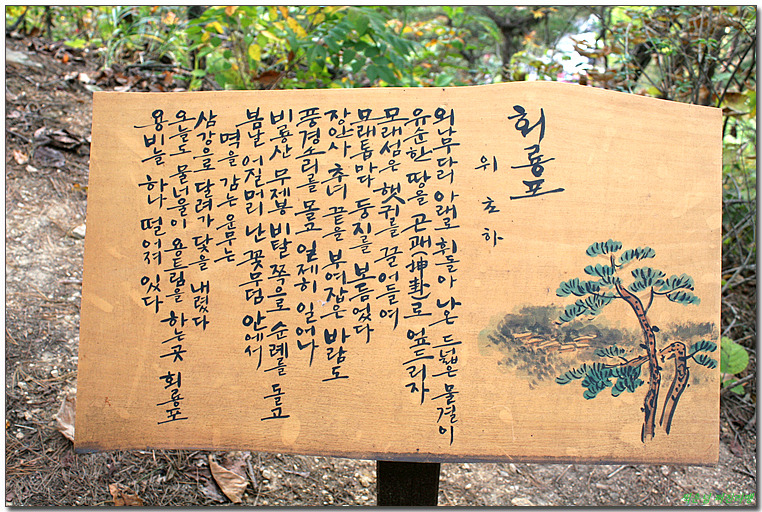 회룡포
위초하
외나무다리 아래로 휘돌아 나온 드넓은 물결이
유순한 땅을 곤괘(坤卦)로 엎드리자
모래섬은 햇귀를 끌어들여
모래톱마다 둥지를 보듬었다
장안사 추녀 끝을 부여잡은 바람도
풍경소리를 몰고 일제히 일어나
비룡산 무제봉 비탈 쪽으로 순례를 돌고
봄날 어질머리 난 꽃무덤 안에서
멱을 감는 운무는
삼강으로 달려가 닻을 내렸다
오늘도 물너울이 용트림을 하는 곳 회룡포
용비늘 하나 떨어져 있다